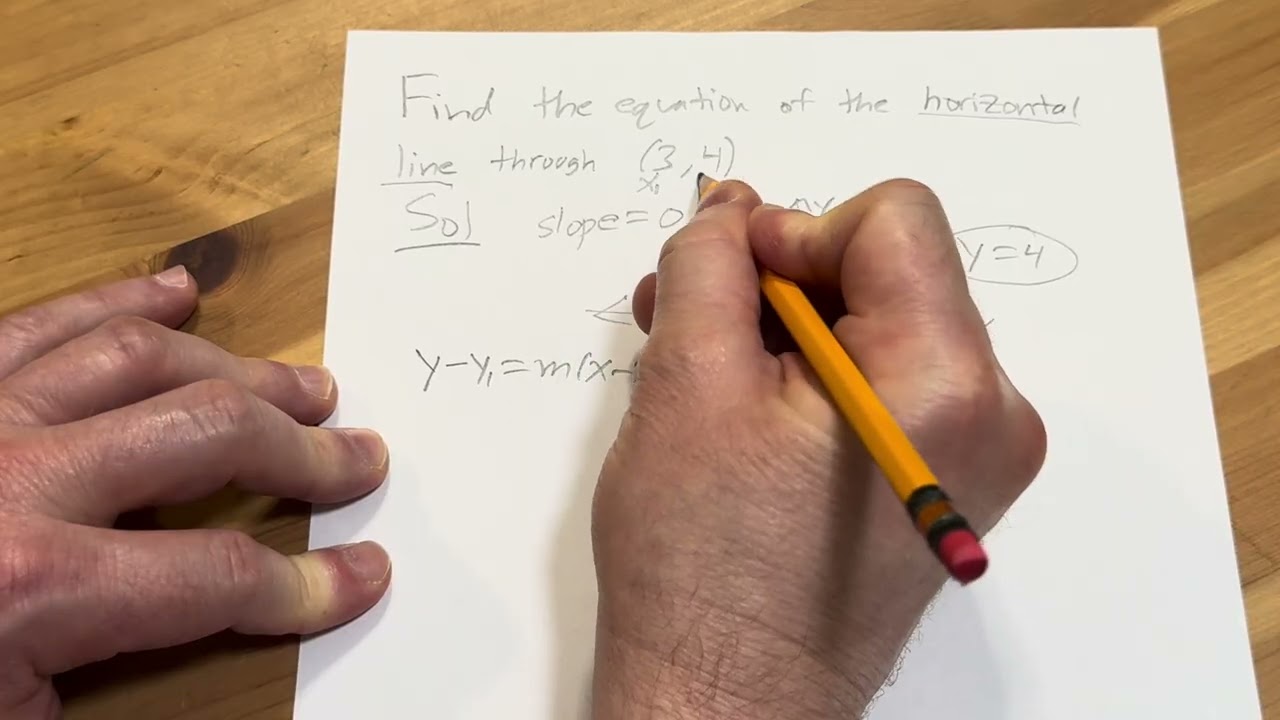 Find the equation of the horizontal
line through (3,4)
x₁
Sol slope=0
y=4
y-y₁=m(x-